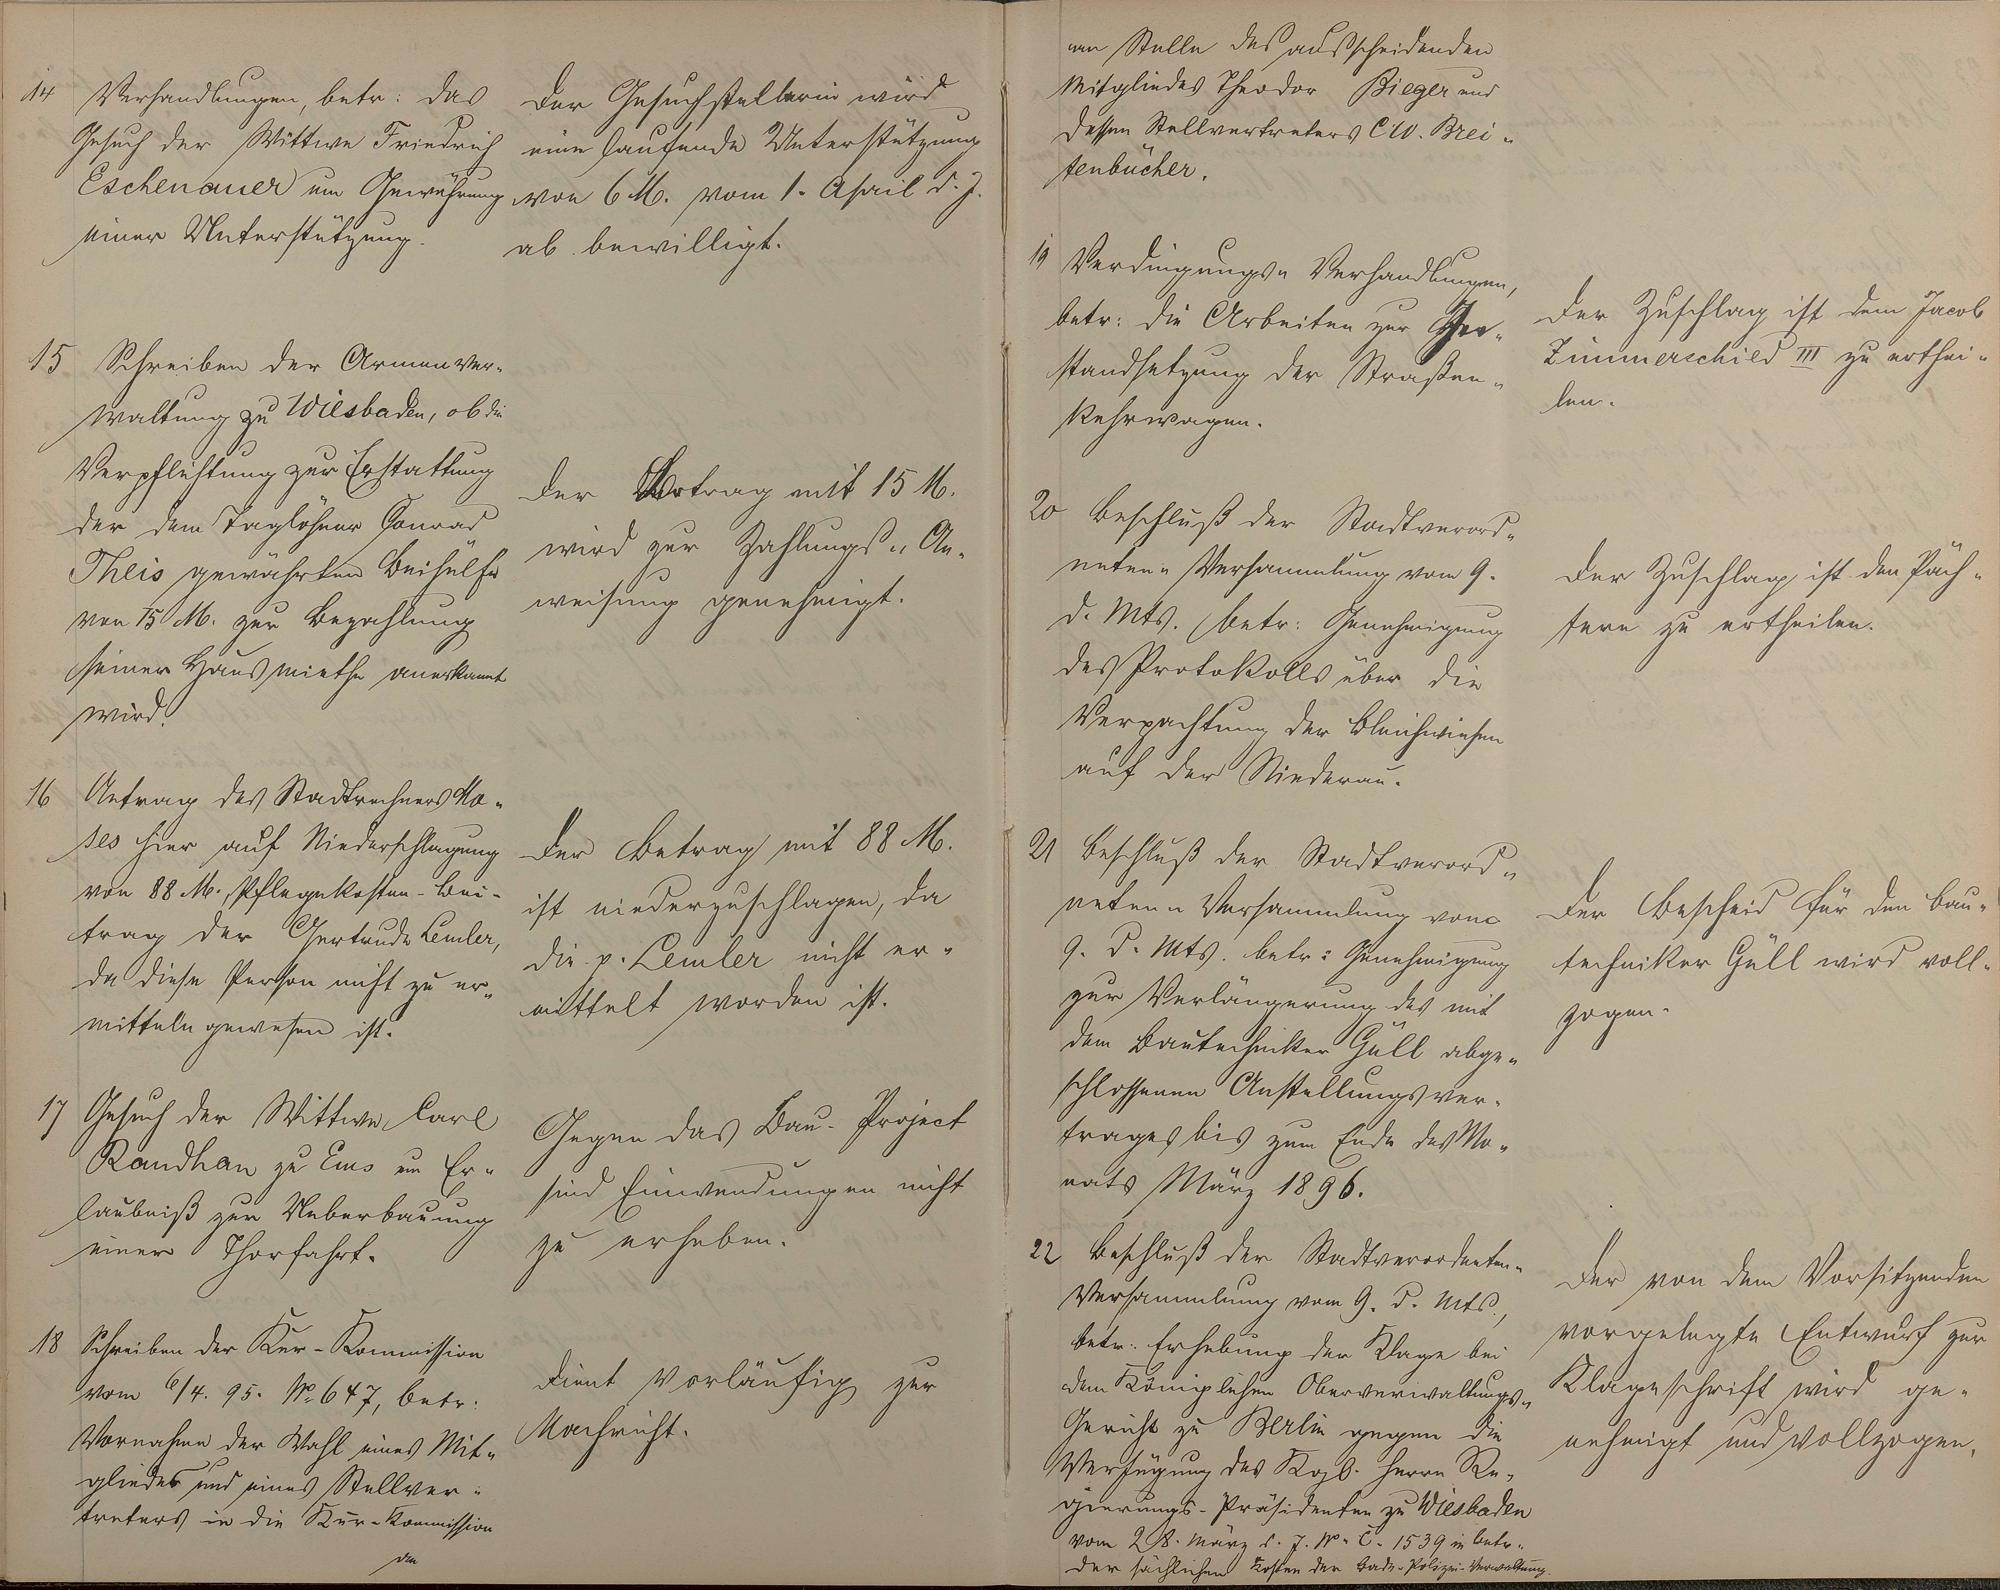 14 Verhandlungen, betr: das
Gesuch der Wittwe Friedrich
Eschenauer um Gewährung
einer Unterstützung.
Der Gesuchstellerin wird
eine laufende Unterstützung
von 6 M. vom 1. April d. J.
ab bewilligt.
15 Schreiben der Armenver-
waltung zu Wiesbaden, ob die
Verpflichtung zur Erstattung
der dem Taglöhner Conrad
Theis gewährten Beihülfe
von 15 M. zur Bezahlung
seiner Hausmiethe anerkannt
wird.
Der Betrag mit 15 M.
wird zur Zahlungs-An-
weisung genehmigt.
16 Antrag des Stadtrechners Mo-
ses hier auf Niederschlagung
von 88 M. Pflegekosten-Bei-
trag der Gertrude Lemler,
da diese Person nicht zu er-
mitteln gewesen ist.
Der Betrag mit 88 M.
ist niederzuschlagen, da
die p. Lemler nicht er-
mittelt worden ist.
17 Gesuch der Wittwe Carl
Randhan zu Ems um Er-
laubniß zur Ueberbauung
einer Thorfahrt.
Gegen das Bau-Project
sind Einwendungen nicht
zu erheben.
18 Schreiben der Kur-Kommission
vom 6/4. 95. No 647, betr:
Vornahme der Wahl eines Mit-
gliedes und eines Stellver-
treters in die Kur-Kommission
Dient vorläufig zur
Nachricht.
an Stelle des ausscheidenden
Mitgliedes Theodor Bieger und
dessen Stellvertreters C. W. Brei-
tenbücher.
19 Verdingungs-Verhandlungen,
betr: die Arbeiten zur
standsetzung der Straßen-
kehrwagen.
Der Zuschlag ist dem Jacob
Zimmerschied III zu erthei-
len.
20 Beschluß der Stadtverord-
neten-Versammlung vom 9.
d. Mts. betr: Genehmigung
des Protokolls über die
Verpachtung der Bleichwiesen
auf der Niederau.
Der Zuschlag ist den Päch-
tern zu ertheilen.
21 Beschluß der Stadtverord-
neten-Versammlung vom
9. d. Mts. betr: Genehmigung
zur Verlängerung des mit
dem Bautechniker Güll abge-
schlossenen Anstellungsver-
trages bis zum Ende des Mo-
nats März 1896.
Der Bescheid für den Bau-
techniker Güll wird voll-
zogen.
22 Beschluß der Stadtverordneten-
Versammlung vom 9. d. Mts.,
betr: Erhebung der Klage bei
dem Königlichen Oberverwaltungs-
Gericht zu Berlin gegen die
Verfügung des Kgl. Herrn Re-
gierungs-Präsidenten zu Wiesbaden
vom 28. März d. J. No C. 1539 in betr.
der sächlichen Kosten der Bade-Polizei-Verwaltung.
Der von dem Vorsitzenden
vorgelegte Entwurf zur
Klageschrift wird ge-
nehmigt und vollzogen.